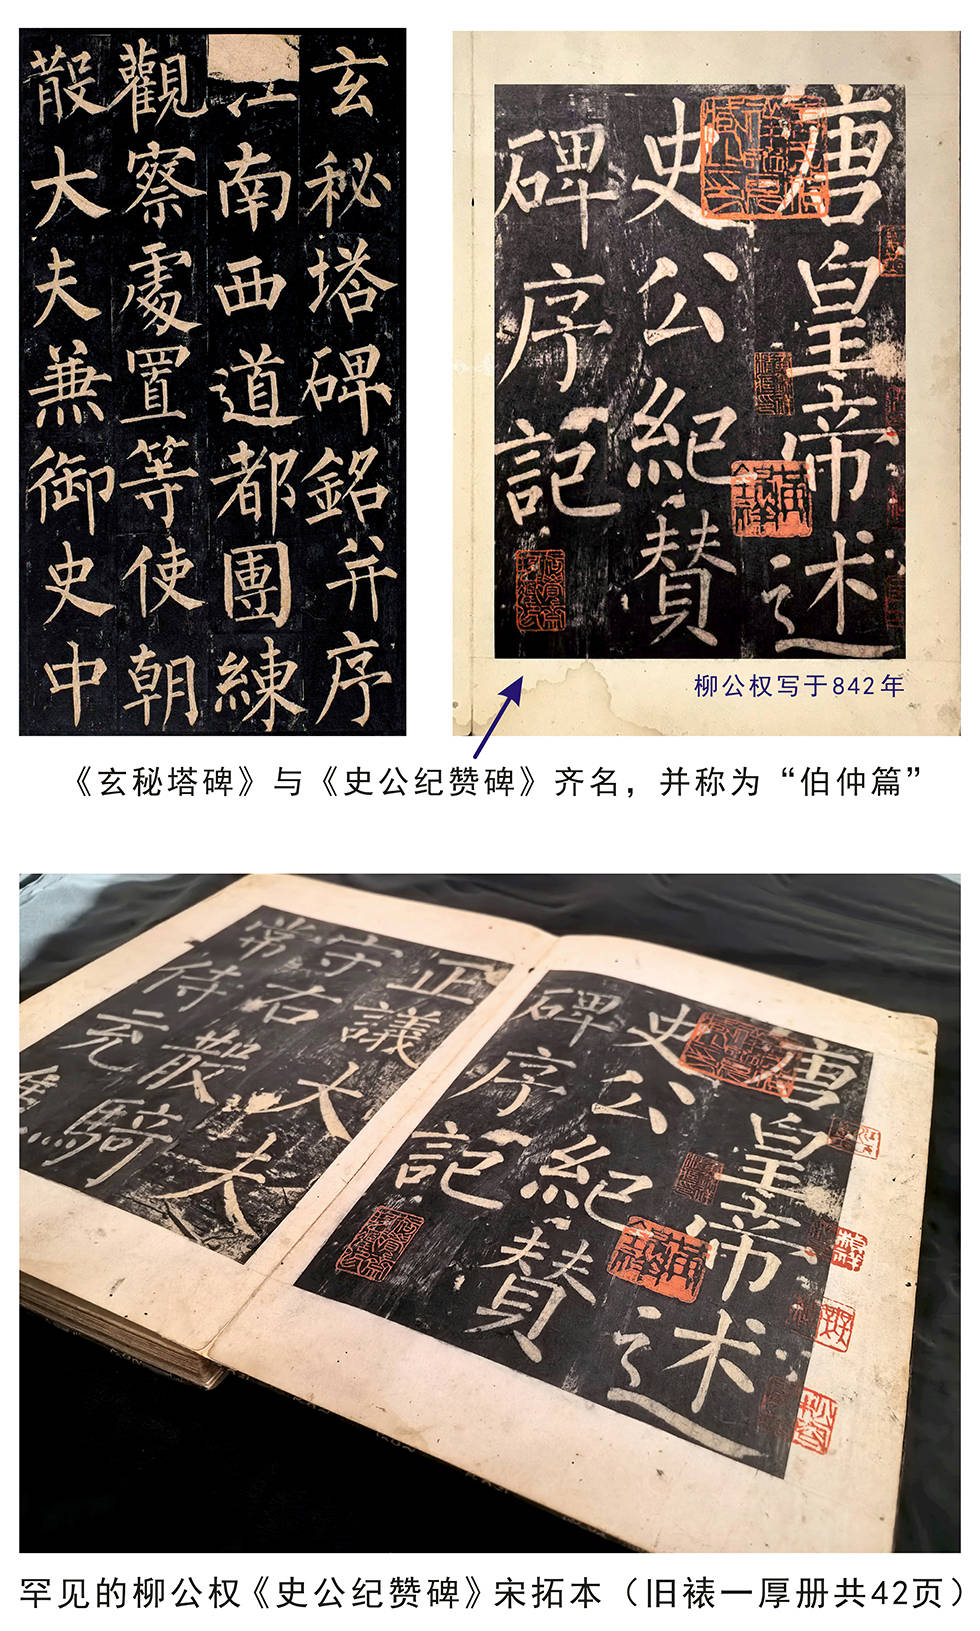 玄秘塔碑銘并序
江南西道都團練
觀察處置等使朝
散大夫兼御史中
唐皇帝述
史公紀賛
碑序記
柳公权写于842年
《玄秘塔碑》与《史公纪赞碑》齐名，并称为“伯仲篇”
唐皇帝述
史公紀賛
碑序記
正議大夫
守右散騎
常侍充
罕见的柳公权《史公纪赞碑》宋拓本（旧裱一厚册共42页）